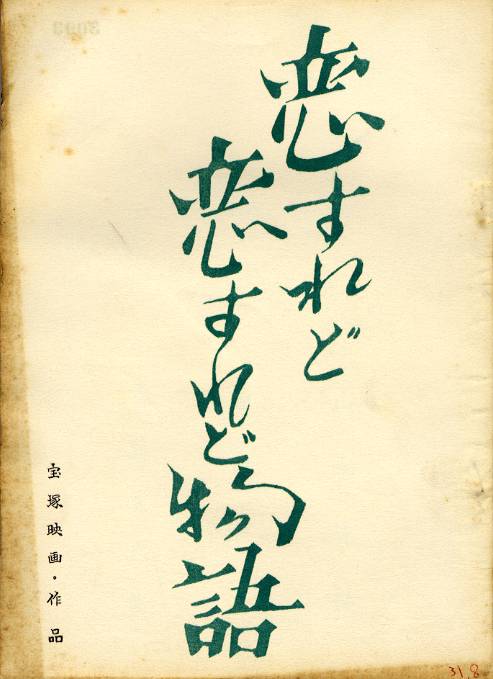 恋すれど
恋すれど物語
宝塚映画・作品
31.8